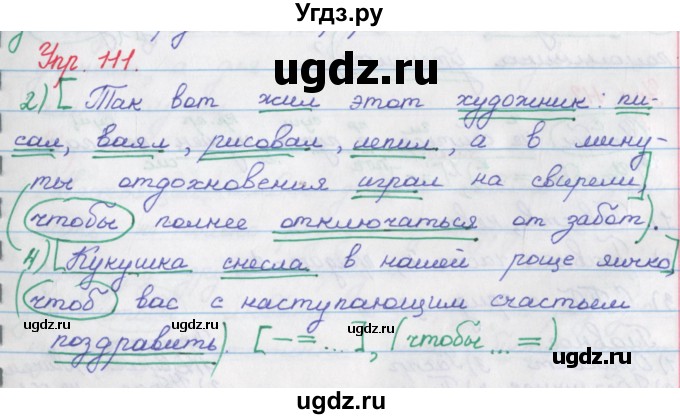 Угдз.ру
Упр. 111.
ugdz.ru ugdz.ru
2) [Так вот жил этот художник: пи-
сал, ваял, рисовал, лепил, а в мину-
ты отдохновения играл на свирели]
(чтобы полнее отключаться от забот).
4) [Кукушка снесла в нашей роще яичко]
(чтоб вас с наступающим счастьем
ugdz.ru ugdz.ru ugdz.ru
поздравить). [ – = ... ], (чтобы ... = )
ugdz.ru ugdz.ru